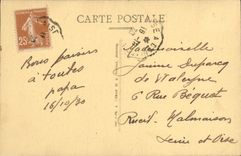 CARTE POSTALE
25
Bons baisers
à toutes
papa
16/10/30
Mademoiselle
Janine Duparcq
de Valerne
6 Rue Béquet
Rueil-Malmaison
Seine et Oise